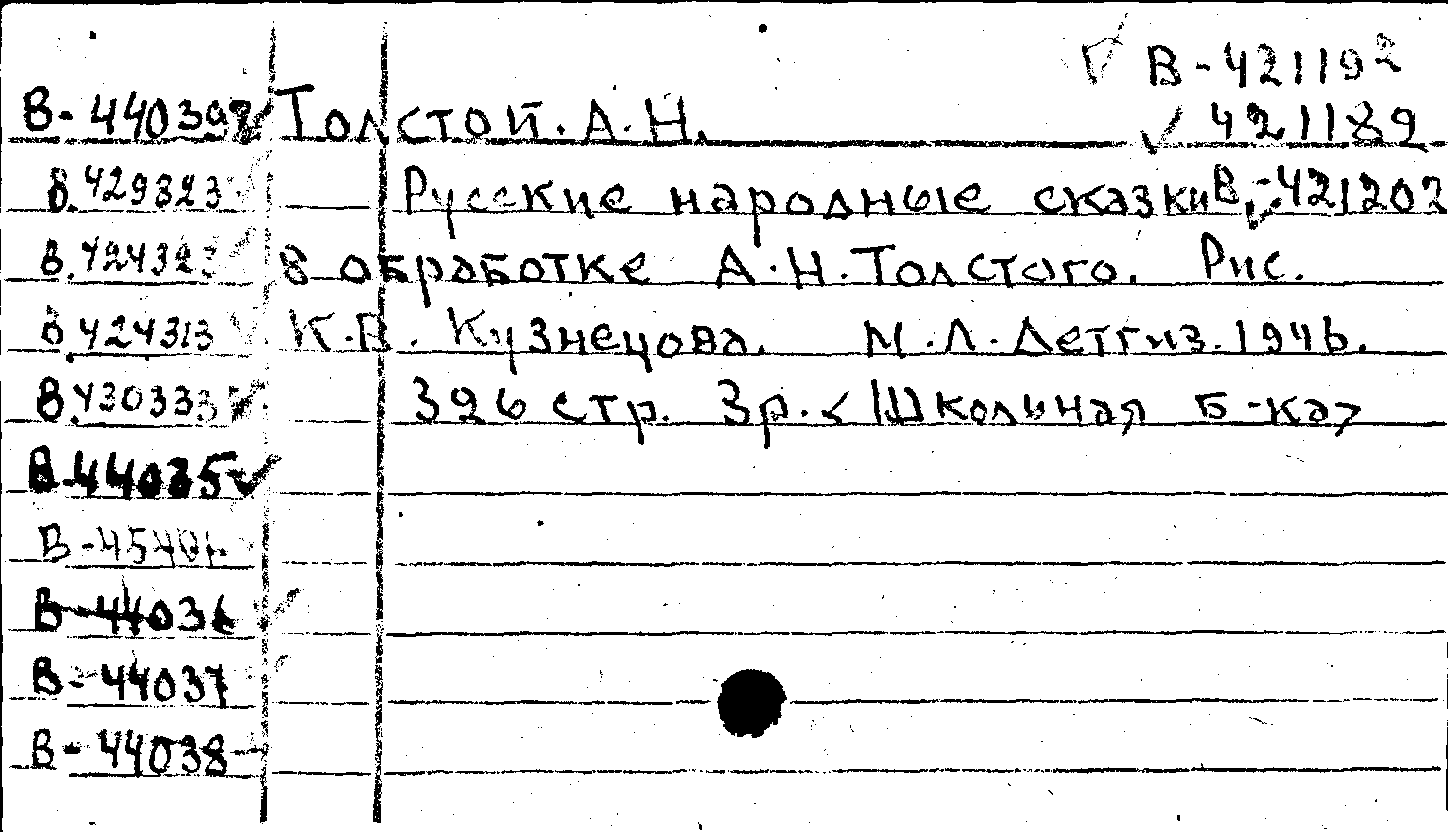 В-421192
В-440398 Толстой. А. Н. 421189
В.429323 Русские народные сказки В-421202
В.424323 в обработке А.Н.Толстого. Рис.
В.424313 К.В. Кузнецова. М.Л.Детгиз.1946.
В.430333 326 стр. 3р. < Школьная б-ка>
В-44035
В-44036
В-44037
В-44038